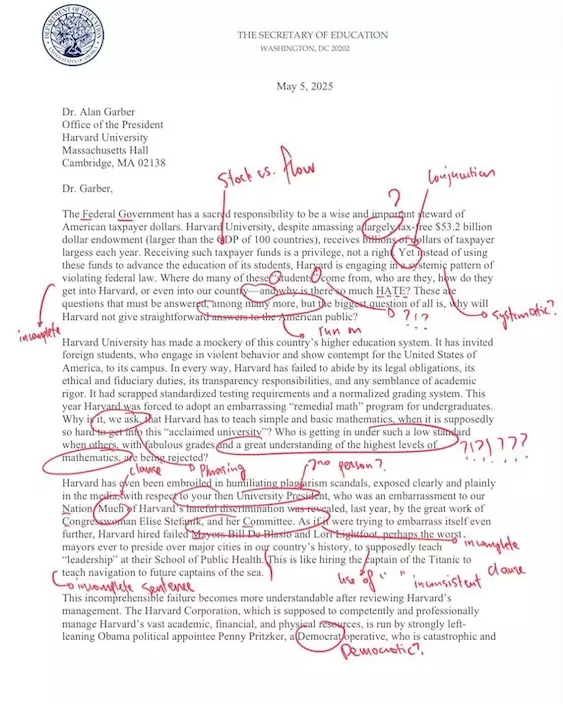 THE SECRETARY OF EDUCATION
WASHINGTON, DC 20202
May 5, 2025
Dr. Alan Garber
Office of the President
Harvard University
Massachusetts Hall
Cambridge, MA 02138
Stock vs. flow
Conjunction
Dr. Garber,
?
The Federal Government has a sacred responsibility to be a wise and important steward of
American taxpayer dollars. Harvard University, despite amassing a largely tax-free $53.2 billion
dollar endowment (larger than the GDP of 100 countries), receives billions of dollars of taxpayer
largess each year. Receiving such taxpayer funds is a privilege, not a right. Yet instead of using
these funds to advance the education of its students, Harvard is engaging in a systemic pattern of
violating federal law. Where do many of these "students" come from, who are they, how do they
get into Harvard, or even into our country—and why is there so much HATE? These are
questions that must be answered, among many more, but the biggest question of all is, why will
Harvard not give straightforward answers to the American public?
incomplete
run on
?!?
systematic?
Harvard University has made a mockery of this country's higher education system. It has invited
foreign students, who engage in violent behavior and show contempt for the United States of
America, to its campus. In every way, Harvard has failed to abide by its legal obligations, its
ethical and fiduciary duties, its transparency responsibilities, and any semblance of academic
rigor. It had scrapped standardized testing requirements and a normalized grading system. This
year Harvard was forced to adopt an embarrassing "remedial math" program for undergraduates.
Why is it, we ask, that Harvard has to teach simple and basic mathematics, when it is supposedly
so hard to get into this "acclaimed university"? Who is getting in under such a low standard
when others, with fabulous grades and a great understanding of the highest levels of
mathematics, are being rejected?
?!?!???
clause
Phrasing
?no person?
Harvard has even been embroiled in humiliating plagiarism scandals, exposed clearly and plainly
in the media, with respect to your then University President, who was an embarrassment to our
Nation. Much of Harvard's hateful discrimination was revealed, last year, by the great work of
Congresswoman Elise Stefanik, and her Committee. As if it were trying to embarrass itself even
further, Harvard hired failed Mayors Bill De Blasio and Lori Lightfoot, perhaps the worst
mayors ever to preside over major cities in our country's history, to supposedly teach
"leadership" at their School of Public Health. This is like hiring the captain of the Titanic to
teach navigation to future captains of the sea.
incomplete
clause
incomplete sentence
use of " " inconsistent
This incomprehensible failure becomes more understandable after reviewing Harvard's
management. The Harvard Corporation, which is supposed to competently and professionally
manage Harvard's vast academic, financial, and physical resources, is run by strongly left-
leaning Obama political appointee Penny Pritzker, a Democrat operative, who is catastrophic and
Democratic?